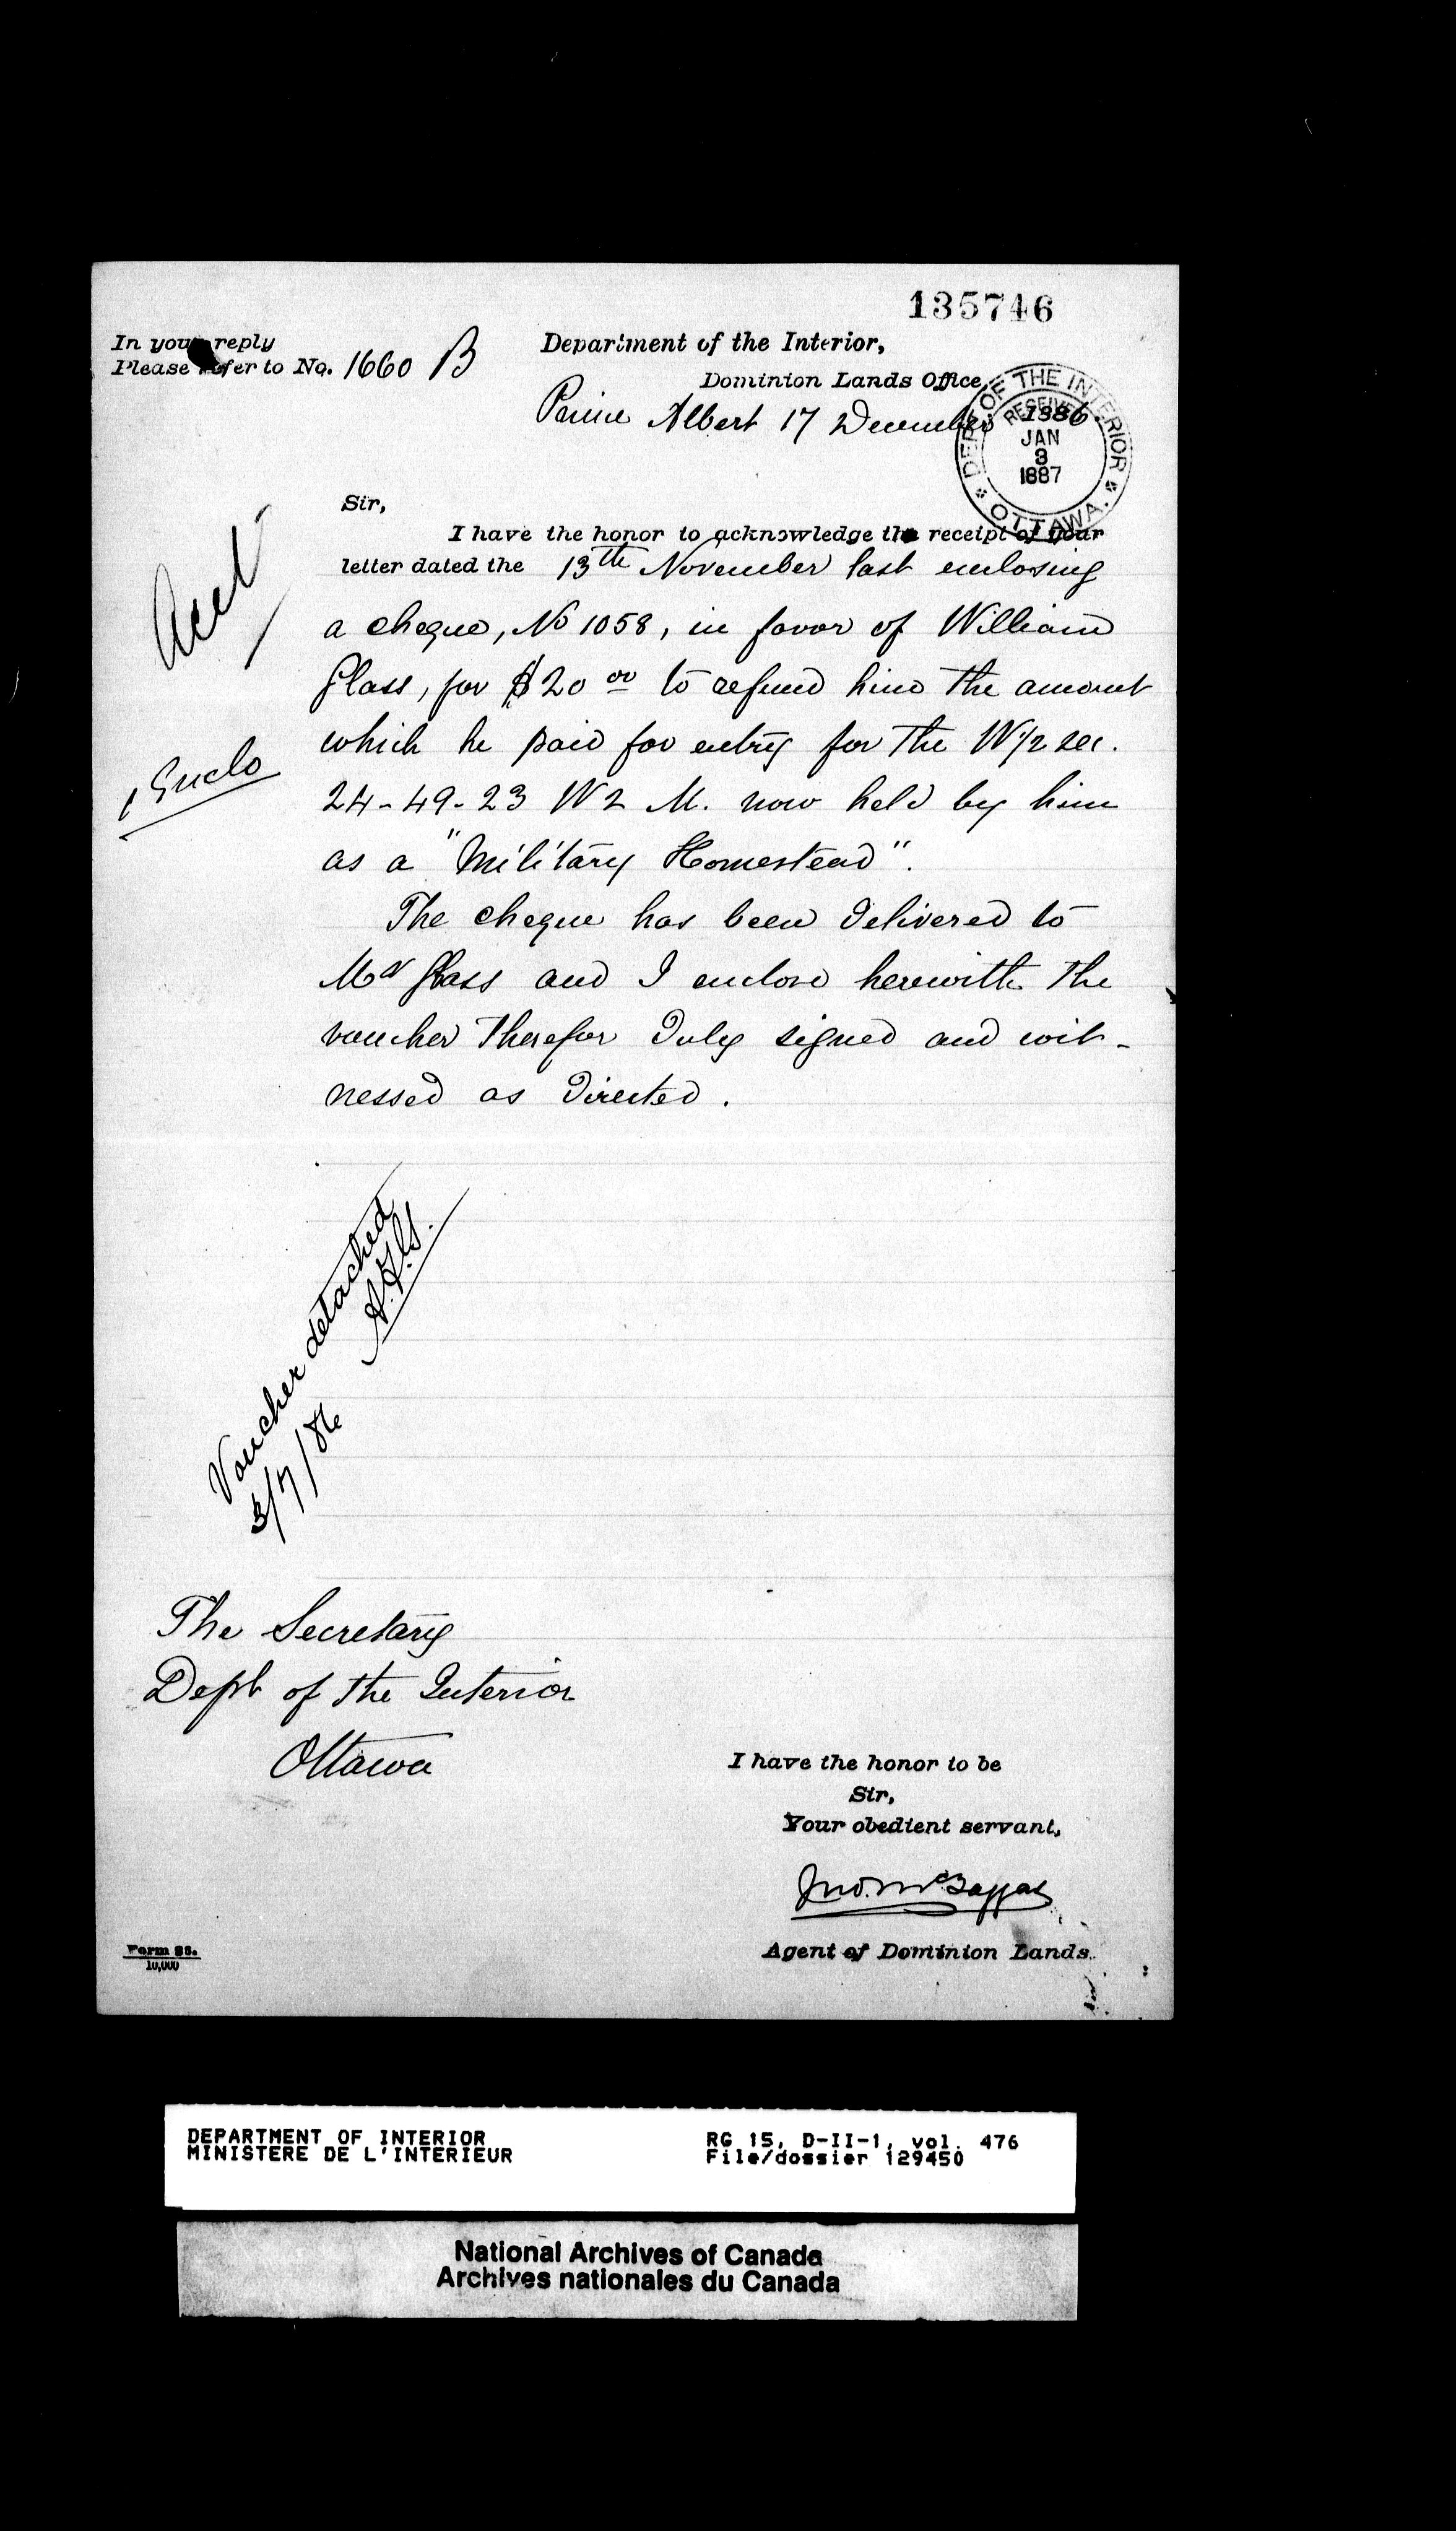 135746
In your reply
Please refer to No. 1660 B
Department of the Interior,
Dominion Lands Office,
Prince Albert 17 December 1886.
DEPT. OF THE INTERIOR
RECEIVED
JAN
3
1887
OTTAWA.
Sir,
I have the honor to acknowledge the receipt of your
letter dated the 13th November last enclosing
a cheque, No 1058, in favor of William
Glass, for $20 00 to refund him the amount
which he paid for entry for the W 1/2 sec.
24-49-23 W 2 M. now held by him
as a "Military Homestead".
The cheque has been delivered to
Mr Glass and I enclose herewith the
voucher therefor duly signed and wit-
nessed as directed.
1 Enclo
Voucher detached
3/7/86
The Secretary
Dept of the Interior
Ottawa
I have the honor to be
Sir,
Your obedient servant,
Jno. McTaggart
Agent of Dominion Lands.
Form 86.
10,000
DEPARTMENT OF INTERIOR
MINISTERE DE L'INTERIEUR
RG 15, D-II-1, vol. 476
File/dossier 129450
National Archives of Canada
Archives nationales du Canada